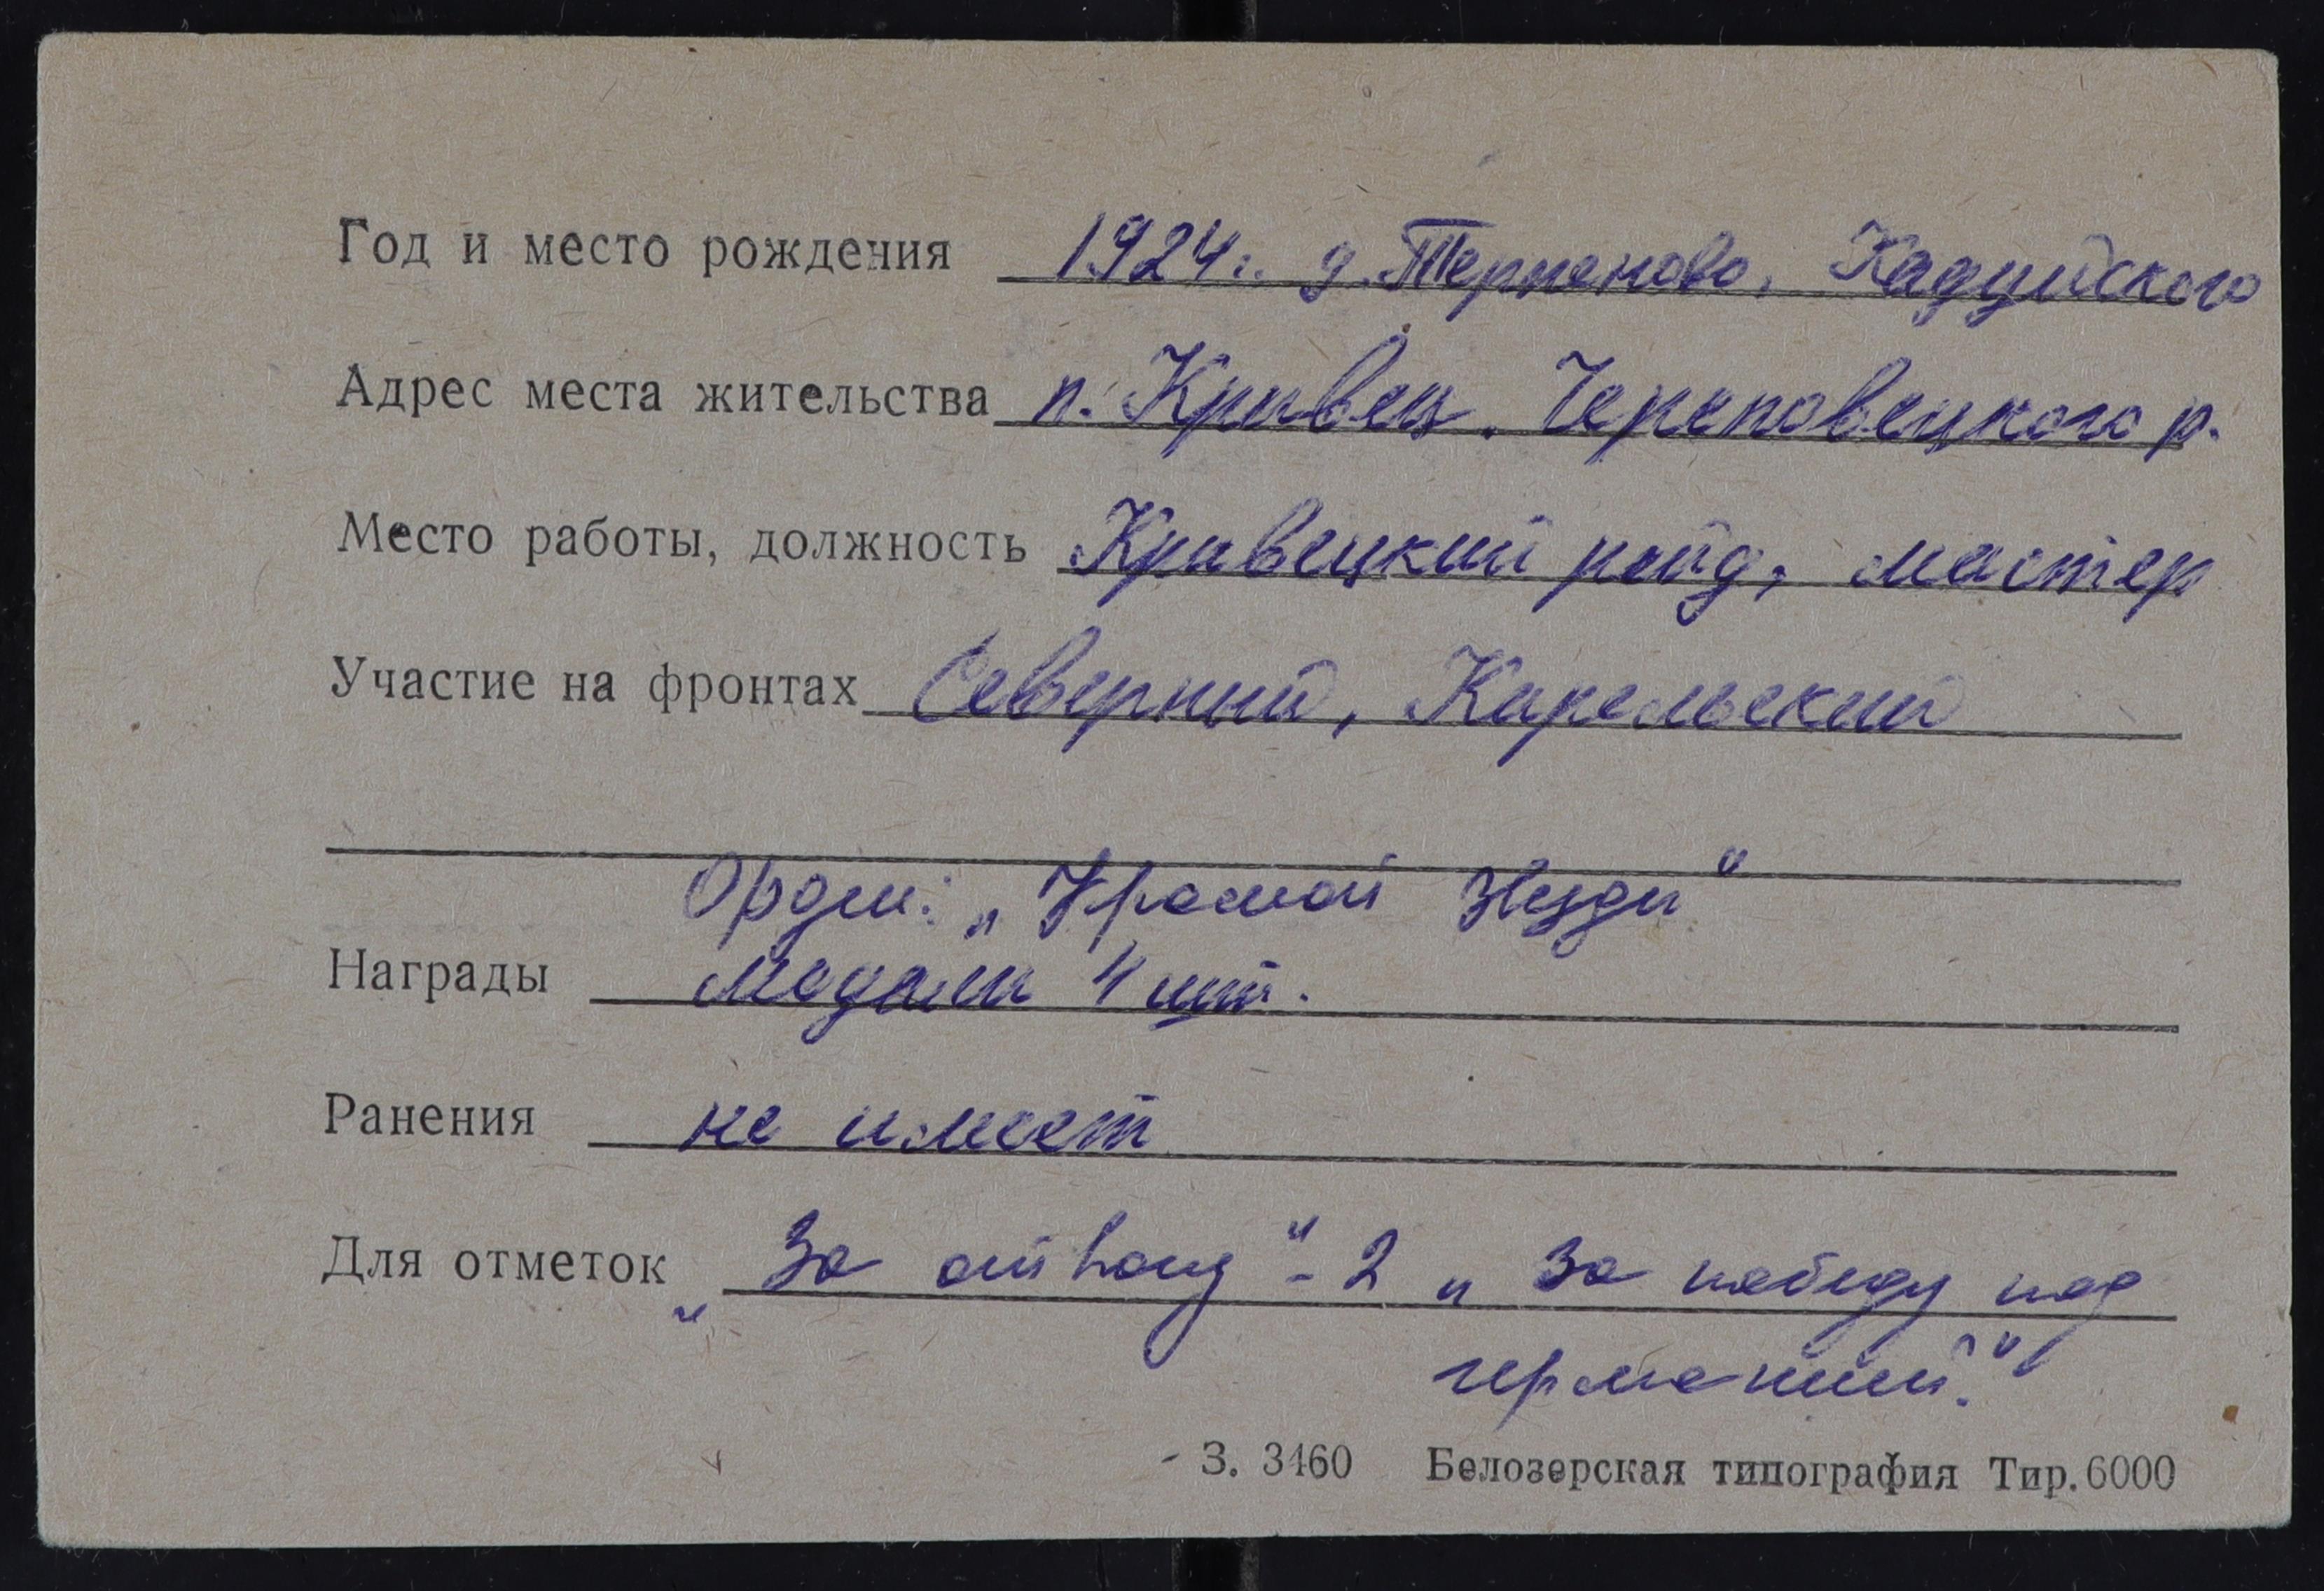 Год и место рождения 1924г. д. Терпеново, Кадуйского
Адрес места жительства п. Кривец. Череповецкого р.
Место работы, должность Кривецкий рейд, мастер
Участие на фронтах Северный, Карельский
Орден: „Красной Звезды"
Награды медали 4 шт.
Ранения не имеет
Для отметок „За отвагу" - 2 „За победу над
германией."
З. 3460 Белозерская типография Тир. 6000